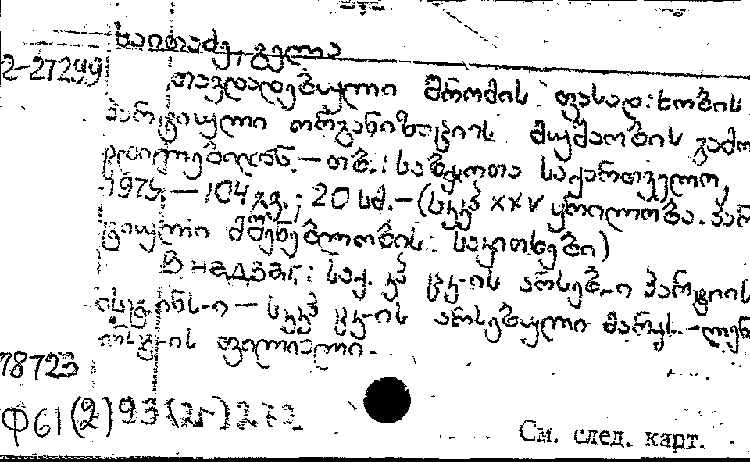 ხაითაძე, გელა
2-27299
თავდადებული შრომის ფასად: ხობის
პარტიული ორგანიზაციის მუშაობის გამო
ცდილებიდან. — თბ.: საბჭოთა საქართველო,
1975. — 104 გვ.; 20 სმ. — (სკკპ XXV ყრილობა. პარ
ტიული მშენებლობის საკითხები)
В надзаг.: საქ. კპ ცკ-ის არსებ.-ი პარტიის
ისტ. ინსტ-ი — სკკპ ცკ-ის არსებული მარქს.-ლენ
ინსტ-ის ფილიალი.
78723
Ф61(2)93(25)272
См. след. карт.